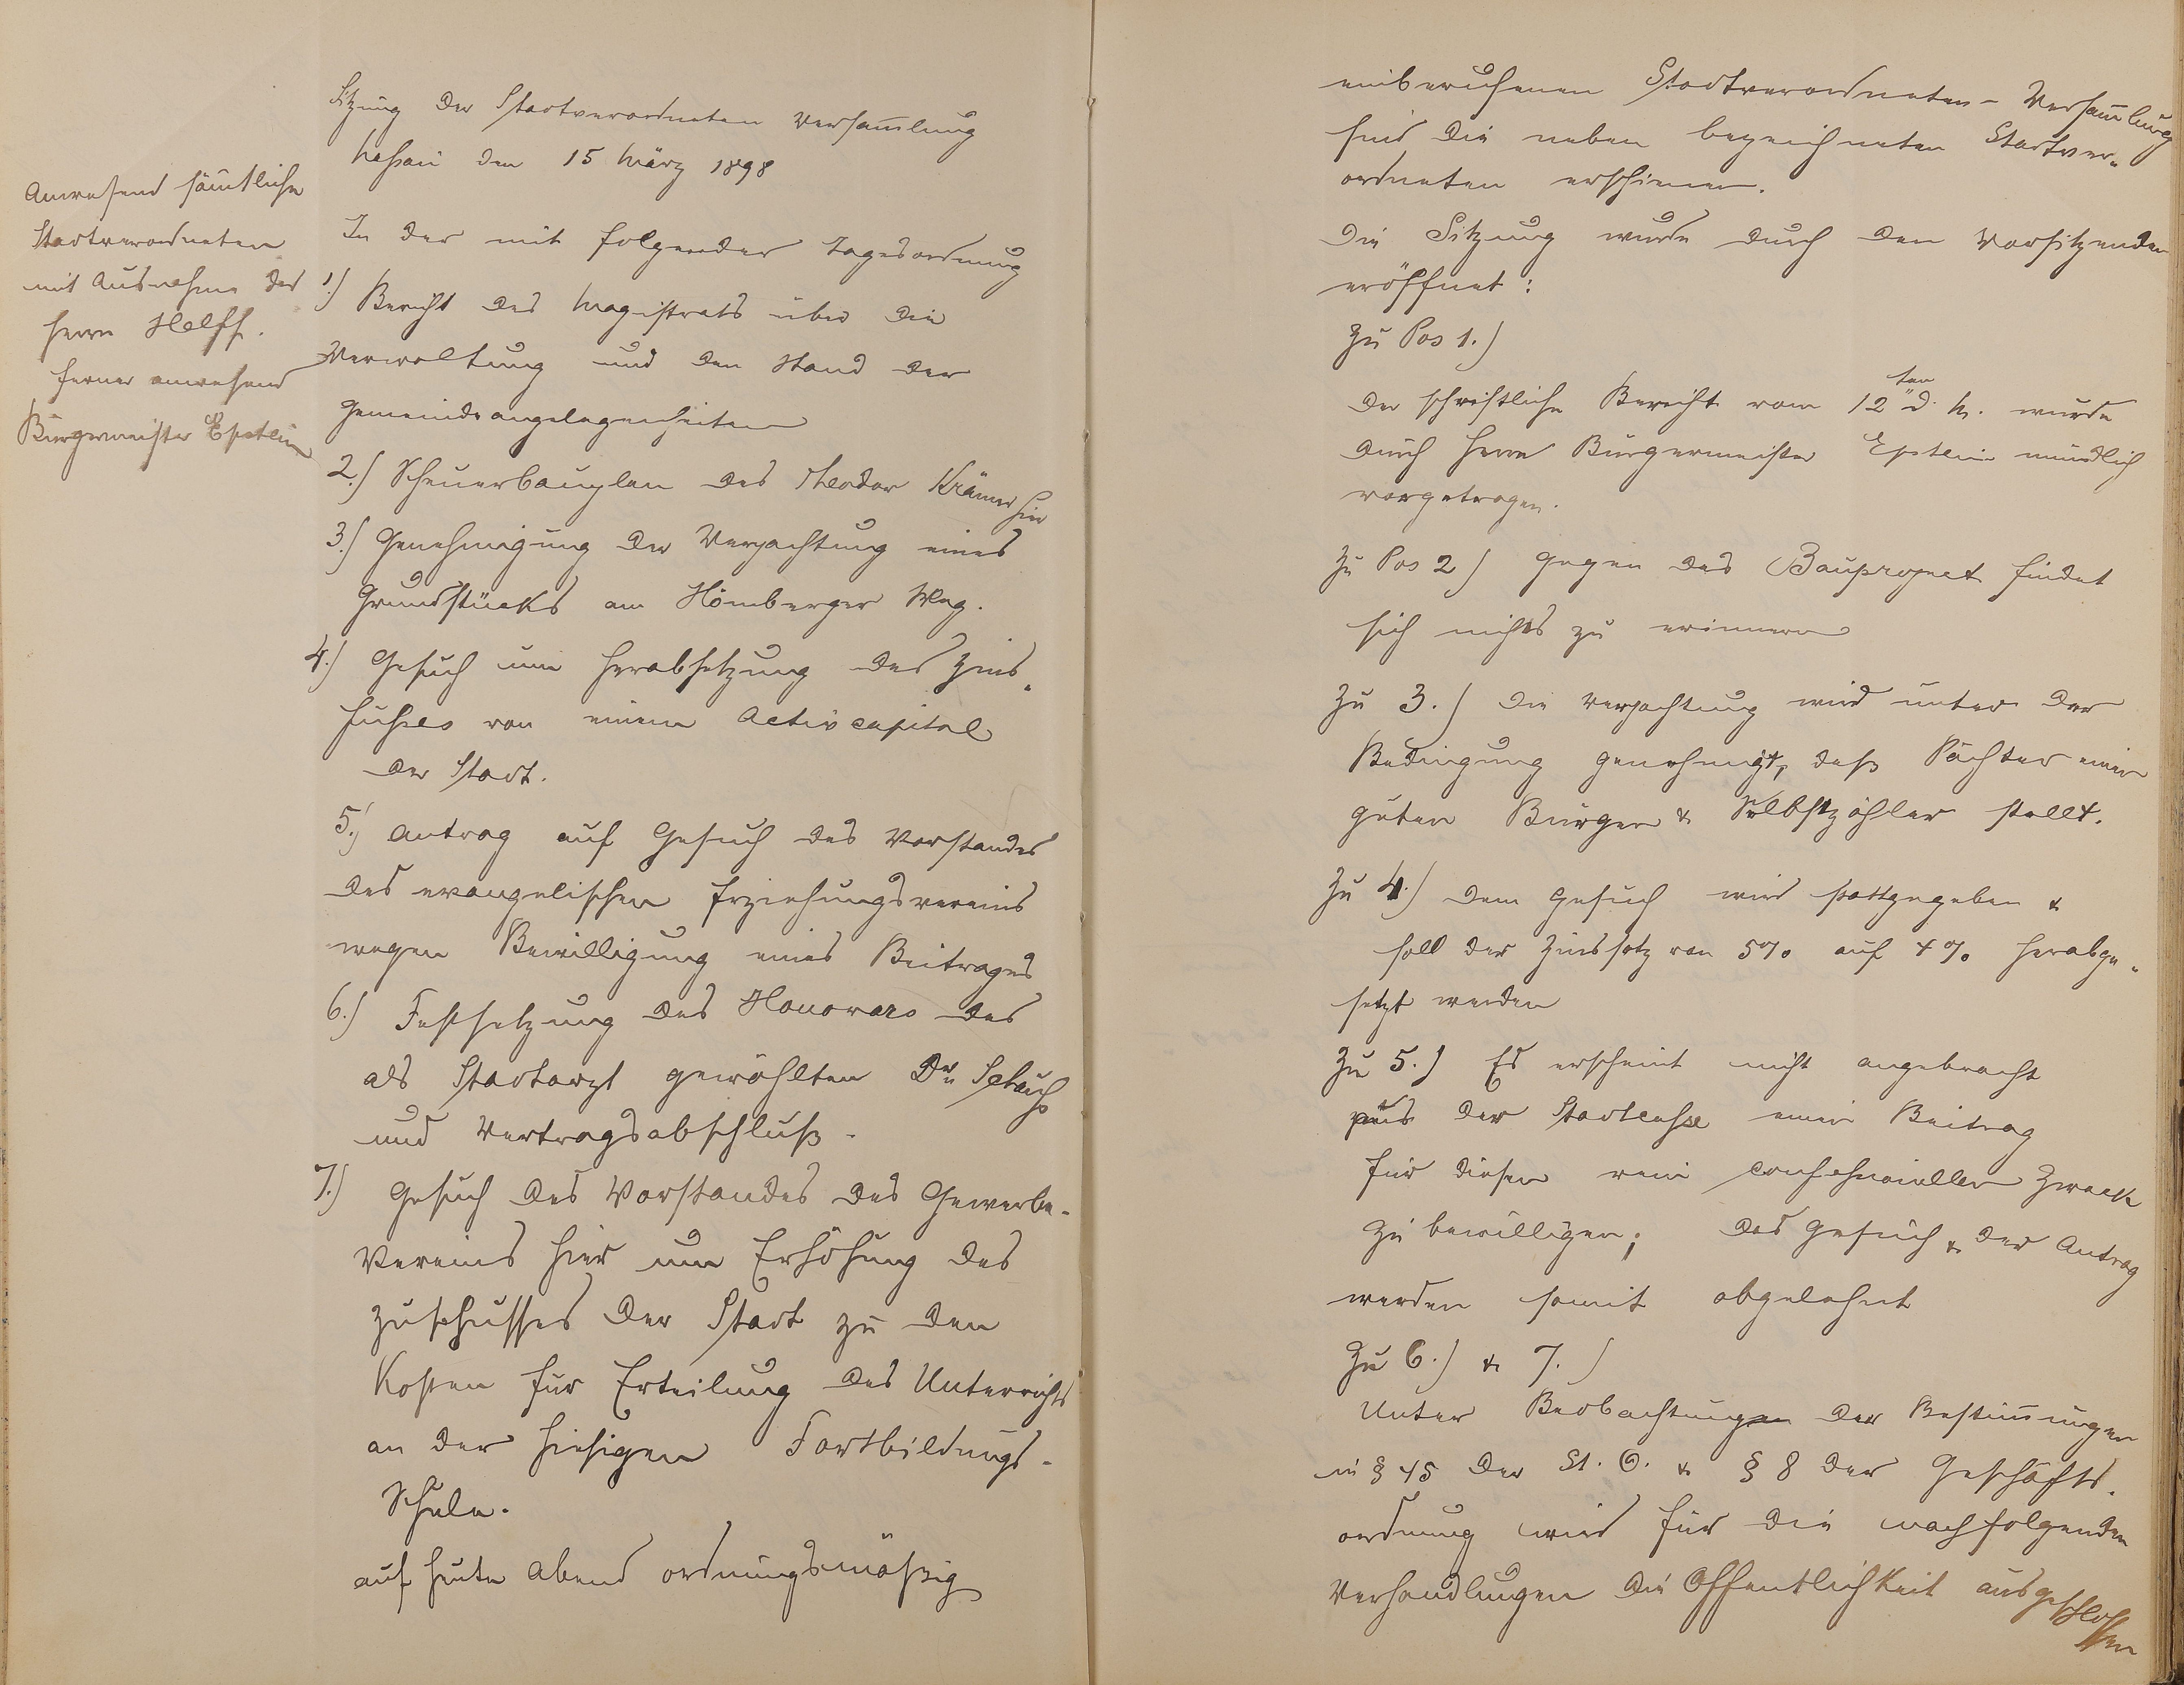 Sitzung der Stadtverordneten Versam̅lung
Nassau den 15 März 1898
Anwesend sämtliche
Stadtverordneten
mit Ausnahme des
Herrn Helff.
ferner anwesend
Bürgermeister Epstein
In der mit folgender Tagesordnung
1.) Bericht des Magistrats über die
Verwaltung und den Stand der
Gemeindeangelegenheiten
2.) Scheuerbauplan des Theodor Krämer hier
3.) Genehmigung der Verpachtung eines
Grundstücks am Hömberger Weg.
4.) Gesuch um Herabsetzung des Zins-
fusses von einem Activcapital
der Stadt.
5.) Antrag auf Gesuch des Vorstandes
des evangelischen Erziehungsvereins
wegen Bewilligung eines Beitrages
6.) Festsetzung des Honorars des
als Stadtarzt gewählten Dr.
und Vertragsabschluß.
7.) Gesuch des Vorstandes des Gewerbe-
Vereins hier um Erhöhung des
Zuschusses der Stadt zu den
Kosten für Erteilung des Unterrichts
an der hiesigen Fortbildungs-
Schule.
auf heute Abend ordnungsmäßig
einberufenen Stadtverordneten-Versam̅lung
sind die neben bezeichneten Stadtver-
ordneten erschienen.
Die Sitzung wurde durch den Vorsitzenden
eröffnet:
Zu Pos 1.)
Der schriftliche Bericht vom 12ten d. M. wurde
durch Herrn Bürgermeister Epstein mündlich
vorgetragen.
Zu Pos 2) Gegen das Bauproject findet
sich nichts zu erinnern
Zu 3.) Die Verpachtung wird unter der
Bedingung genehmigt, daß Pächter einen
guten Bürgen & Selbstzahler stellt.
Zu 4.) Dem Gesuch wird stattgegeben &
soll der Zinssatz von 5% auf 4% herabge-
setzt werden
Zu 5.) Es erscheint nicht angebracht
aus der Stadtcasse einen Beitrag
für diesen rein confessionellen Zweck
zu bewilligen; das Gesuch & der Antrag
werden somit abgelehnt
Zu 6.) & 7.)
Unter Beobachtungen der Bestim̅ungen
in § 45 der St. O. & § 8 der Geschäfts-
ordnung wird für die nachfolgenden
Verhandlungen die Öffentlichkeit ausgeschlossen